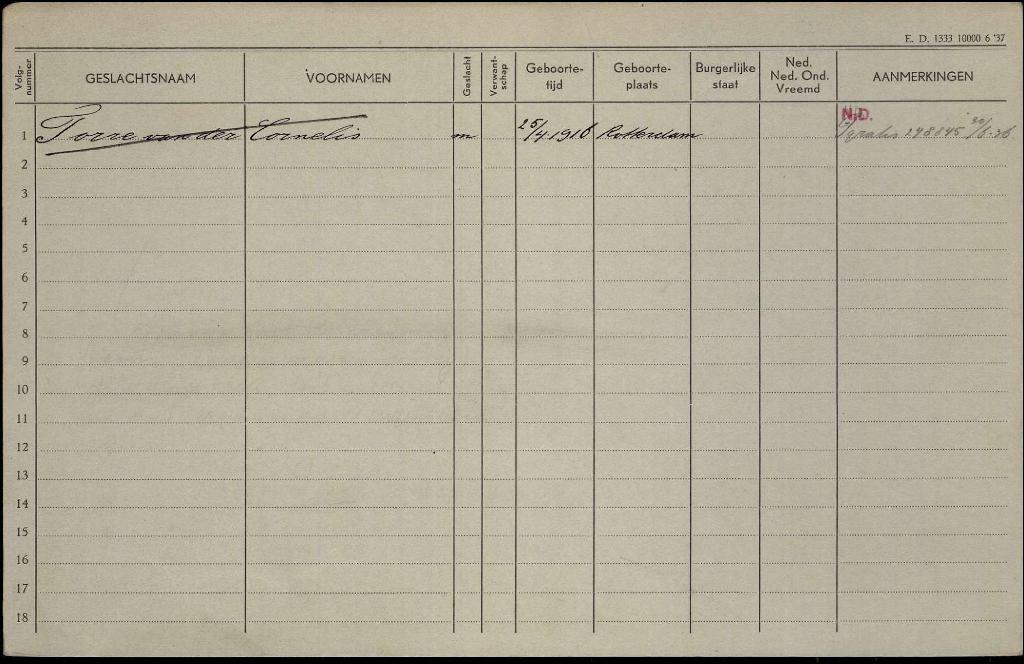 E. D. 1333 10000 6 '37
Volg-nummer GESLACHTSNAAM VOORNAMEN Geslacht Verwant-schap Geboorte-tijd Geboorte-plaats Burgerlijke staat Ned. Ned. Ond. Vreemd AANMERKINGEN
N.D.
1 Torre van der Cornelis m 25/4 1916 Rotterdam gratis 148845
2
3
4
5
6
7
8
9
10
11
12
13
14
15
16
17
18